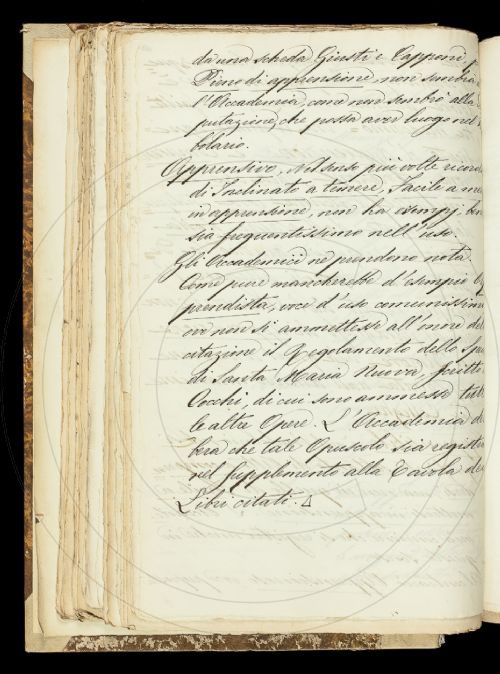 da una scheda Giusti e Capponi
Pieno di apprensione, non sembra
l'Accademia, come non sembrò alla
putazione, che possa aver luogo nel
bolario.
Apprensivo, nel senso più volte ricor
di Inclinato a temere, Facile a me
in apprensione, non ha esempj, ben
sia frequentissimo nell'uso.
Gli Accademici ne prendono nota.
Come pure mancherebbe d'esempio Ap
prendista, voce d'uso comunissimo
ove non si ammettesse all'onore del
citazione il Regolamento dello Spe
di Santa Maria Nuova scritto
Cocchi di cui sono ammesse tut
le altre Opere. L'Accademia de
bera che tale Opuscolo sia registr
nel Supplemento alla Tavola de
Libri citati. Δ